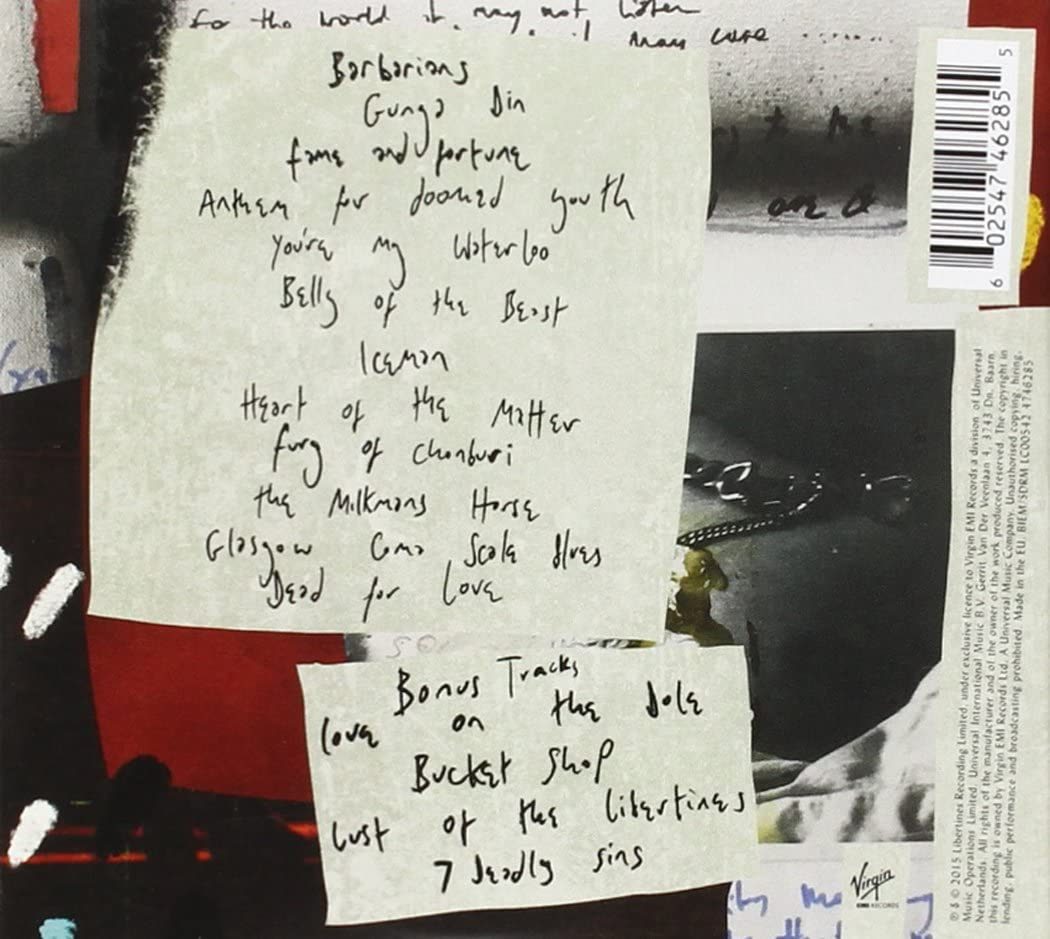 for the world it may not listen
may care .......
Barbarians
Gunga Din
fame and fortune
Anthem for doomed youth
You're my Waterloo
Belly of the Beast
Iceman
Heart of the Matter
fury of chonburi
the Milkmans Horse
Glasgow Coma Scale Blues
Dead for Love
Bonus Tracks
love on the dole
Bucket Shop
Lust of the Libertines
7 deadly sins
6 02547 46285 5
℗ & © 2015 Libertines Recording Limited, under exclusive licence to Virgin EMI Records a division of Universal
Music Operations Limited. Universal International Music B.V. Gerrit Van Der Veenlaan 4, 3743 Dn, Baarn,
Netherlands. All rights of the manufacturer and of the owner of the work produced reserved. The copyright in
this recording is owned by Virgin EMI Records Ltd. A Universal Music Company. Unauthorised copying, hiring,
lending, public performance and broadcasting prohibited. Made in the EU. BIEM/SDRM LC00542 4746285
Virgin
EMI RECORDS